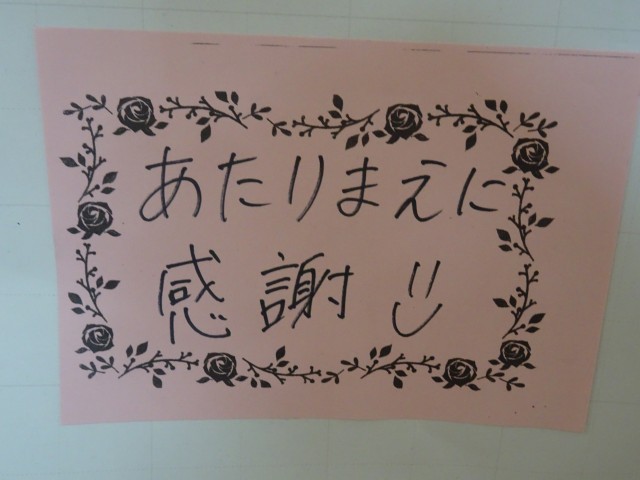 あたりまえに
感謝!!